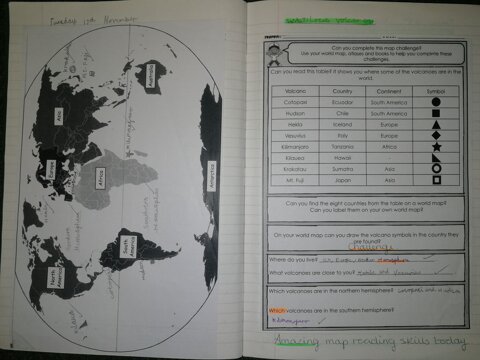 Tuesday 12th November
Asia
Australia
Europe
Africa
Antarctica
South America
North America
Kilimanjaro
Southern
Hemisphere
Can you complete this map challenge?
Use your world map, atlases and books to help you complete these challenges.
Can you read this table? It shows you where some of the volcanoes are in the world.
Volcano Country Continent Symbol
Cotopaxi Ecuador South America
Hudson Chile South America
Hekla Iceland Europe
Vesuvius Italy Europe
Kilimanjaro Tanzania Africa
Kilauea Hawaii -
Krakatau Sumatra Asia
Mt. Fuji Japan Asia
Can you find the eight countries from the table on a world map?
Can you label them on your own world map?
On your world map can you draw the volcano symbols in the country they are found?
Challenge
Where do you live? UK, Europe, Northern Hemisphere
What volcanoes are close to you? Hekla and Vesuvius
Which volcanoes are in the northern hemisphere? Cotopaxi and
Which volcanoes are in the southern hemisphere?
Kilimanjaro
Amazing map reading skills today